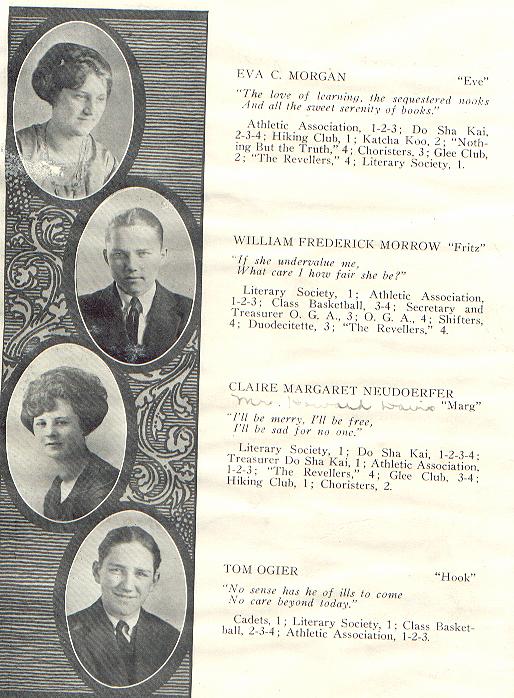 EVA C. MORGAN "Eve"
"The love of learning, the sequestered nooks
And all the sweet serenity of books."
Athletic Association, 1-2-3; Do Sha Kai,
2-3-4; Hiking Club, 1; Katcha Koo, 2; "Noth-
ing But the Truth," 4; Choristers, 3; Glee Club,
2; "The Revellers," 4; Literary Society, 1.
WILLIAM FREDERICK MORROW "Fritz"
"If she undervalue me,
What care I how fair she be?"
Literary Society, 1; Athletic Association,
1-2-3; Class Basketball, 3-4; Secretary and
Treasurer O. G. A., 3; O. G. A., 4; Shifters,
4; Duodecitette, 3; "The Revellers," 4.
CLAIRE MARGARET NEUDOERFER
Mrs. Howard Davis "Marg"
"I'll be merry, I'll be free,
I'll be sad for no one."
Literary Society, 1; Do Sha Kai, 1-2-3-4;
Treasurer Do Sha Kai, 1; Athletic Association,
1-2-3; "The Revellers," 4; Glee Club, 3-4;
Hiking Club, 1; Choristers, 2.
TOM OGIER "Hook"
"No sense has he of ills to come
No care beyond today."
Cadets, 1; Literary Society, 1; Class Basket-
ball, 2-3-4; Athletic Association, 1-2-3.